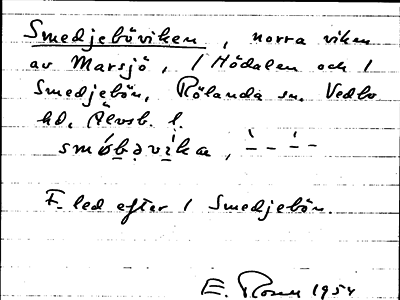 Smedjeböviken, norra viken
av Marsjö, 1 Hödalen och 1
Smedjebön, Rölanda sn. Vedbo
hd. Älvsb. l.
smó̱bəvìka,
F. led efter 1 Smedjebön.
E. Rosén 1954